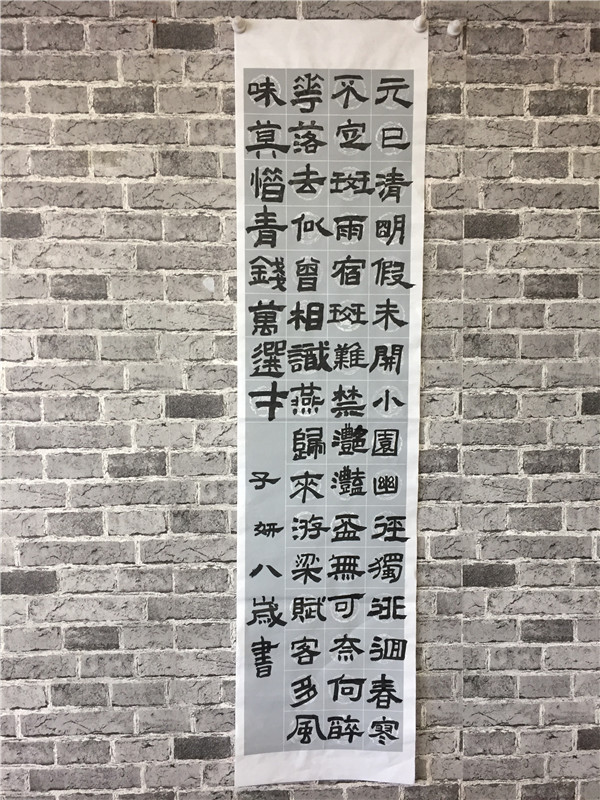 元巳清明假未開小園幽徑獨徘徊春寒
不定斑雨宿斑難禁灔灔盃無可奈何醉
花落去似曾相識燕歸來游梁賦客多風
味莫惜青錢萬選才
子妍八歲書